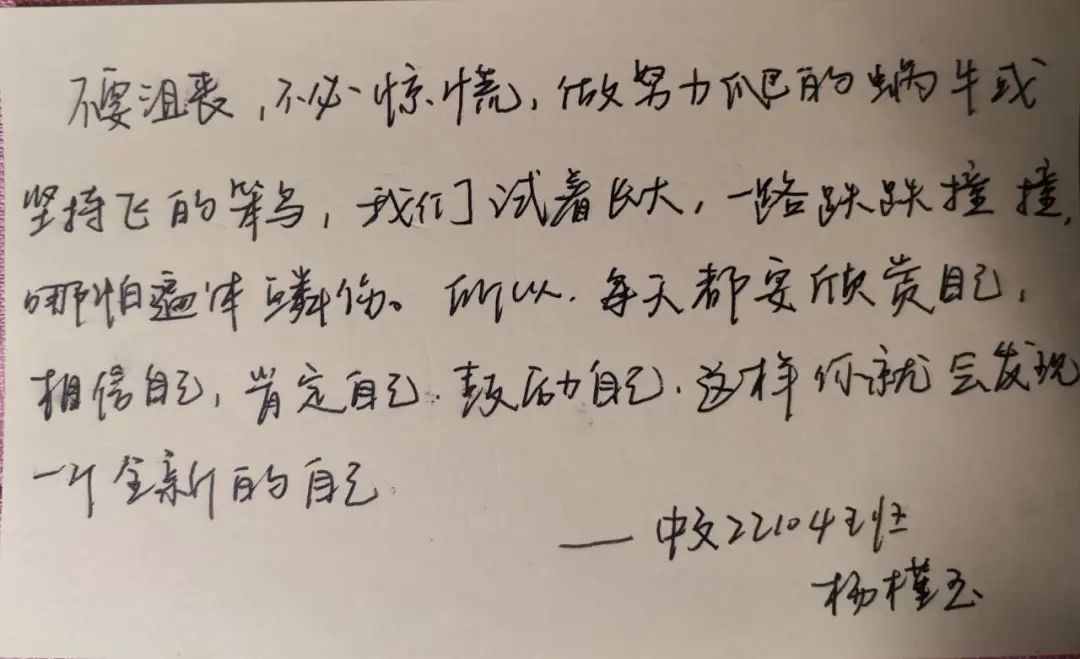 不要沮丧，不必惊慌，做努力爬的蜗牛或
坚持飞的笨鸟，我们试着长大，一路跌跌撞撞，
哪怕遍体鳞伤。所以，每天都要欣赏自己，
相信自己，肯定自己，鼓励自己，这样你就会发现
一个全新的自己。
——中文22104班
杨槿玉